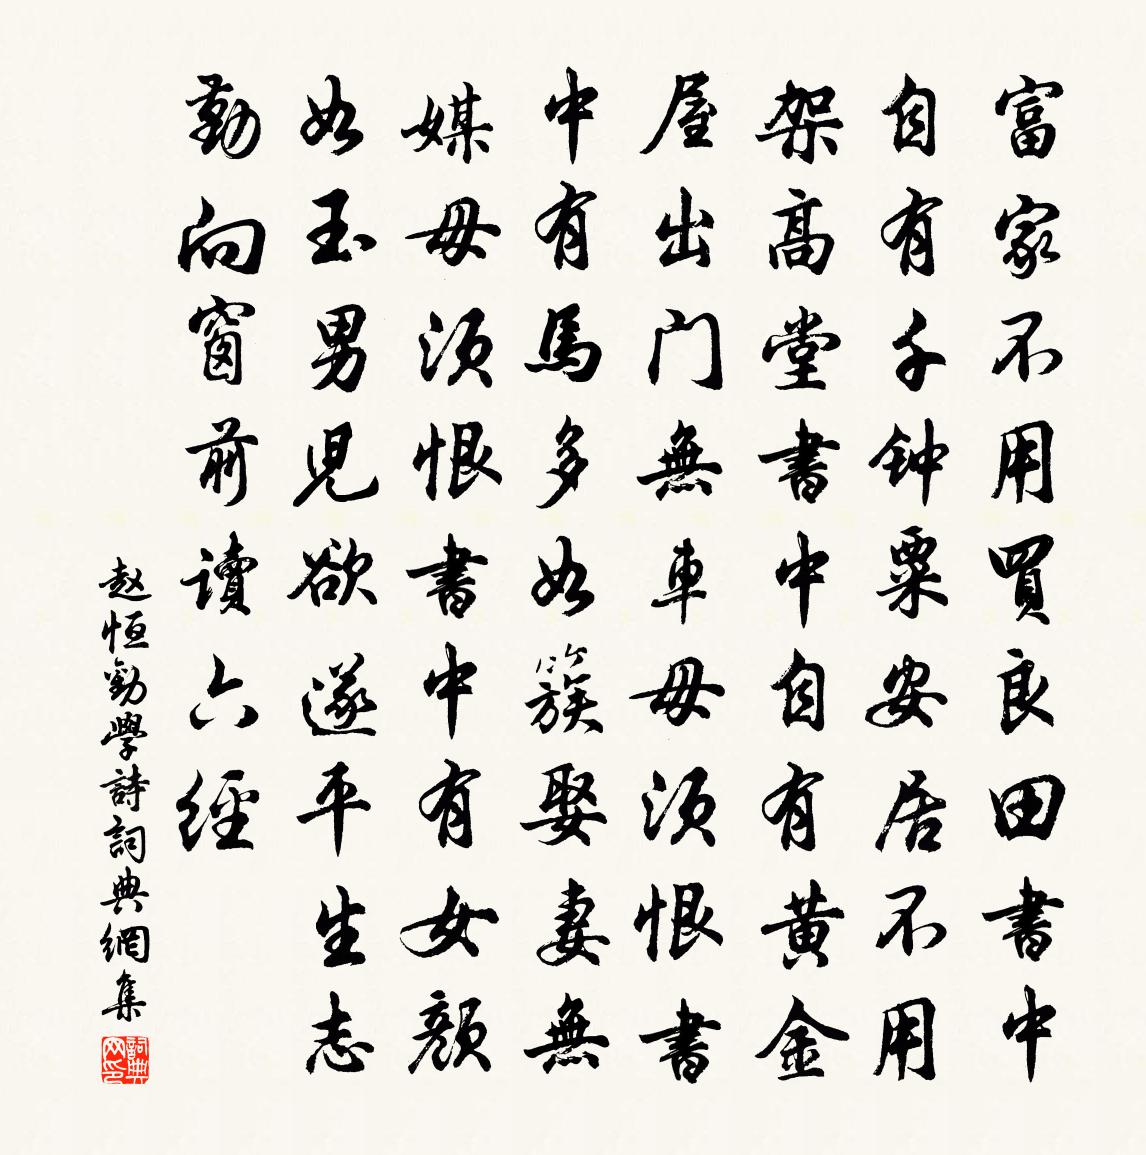 富家不用買良田書中
自有千钟粟安居不用
架髙堂書中自有黄金
屋出门無車毋须恨書
中有馬多如簇娶妻無
媒毋须恨書中有女颜
如玉男児欲遂平生志
勤向窗前讀六經
赵恒勸學詩詞典網集
詞典网印